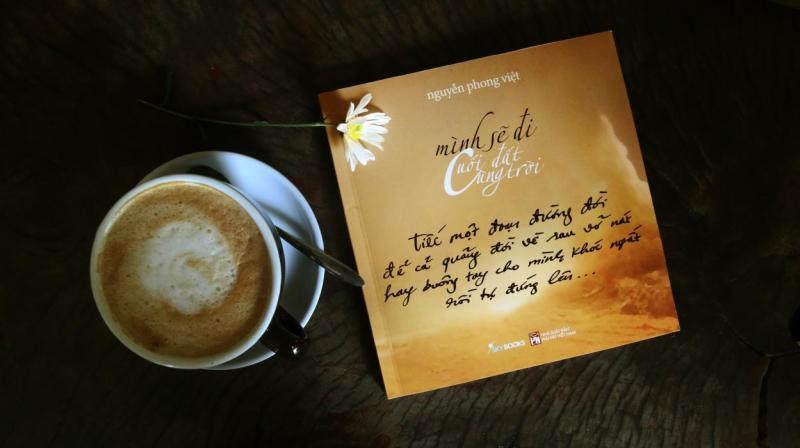 nguyễn phong việt
mình sẽ đi
Cuối đất
Cùng trời
tiếc một đoạn đường đời
để cả quãng đời về sau vỡ nát
hay buông tay cho mình khóc ngất
rồi tự đứng lên...
SKYBOOKS
NHÀ XUẤT BẢN
PHỤ NỮ VIỆT NAM